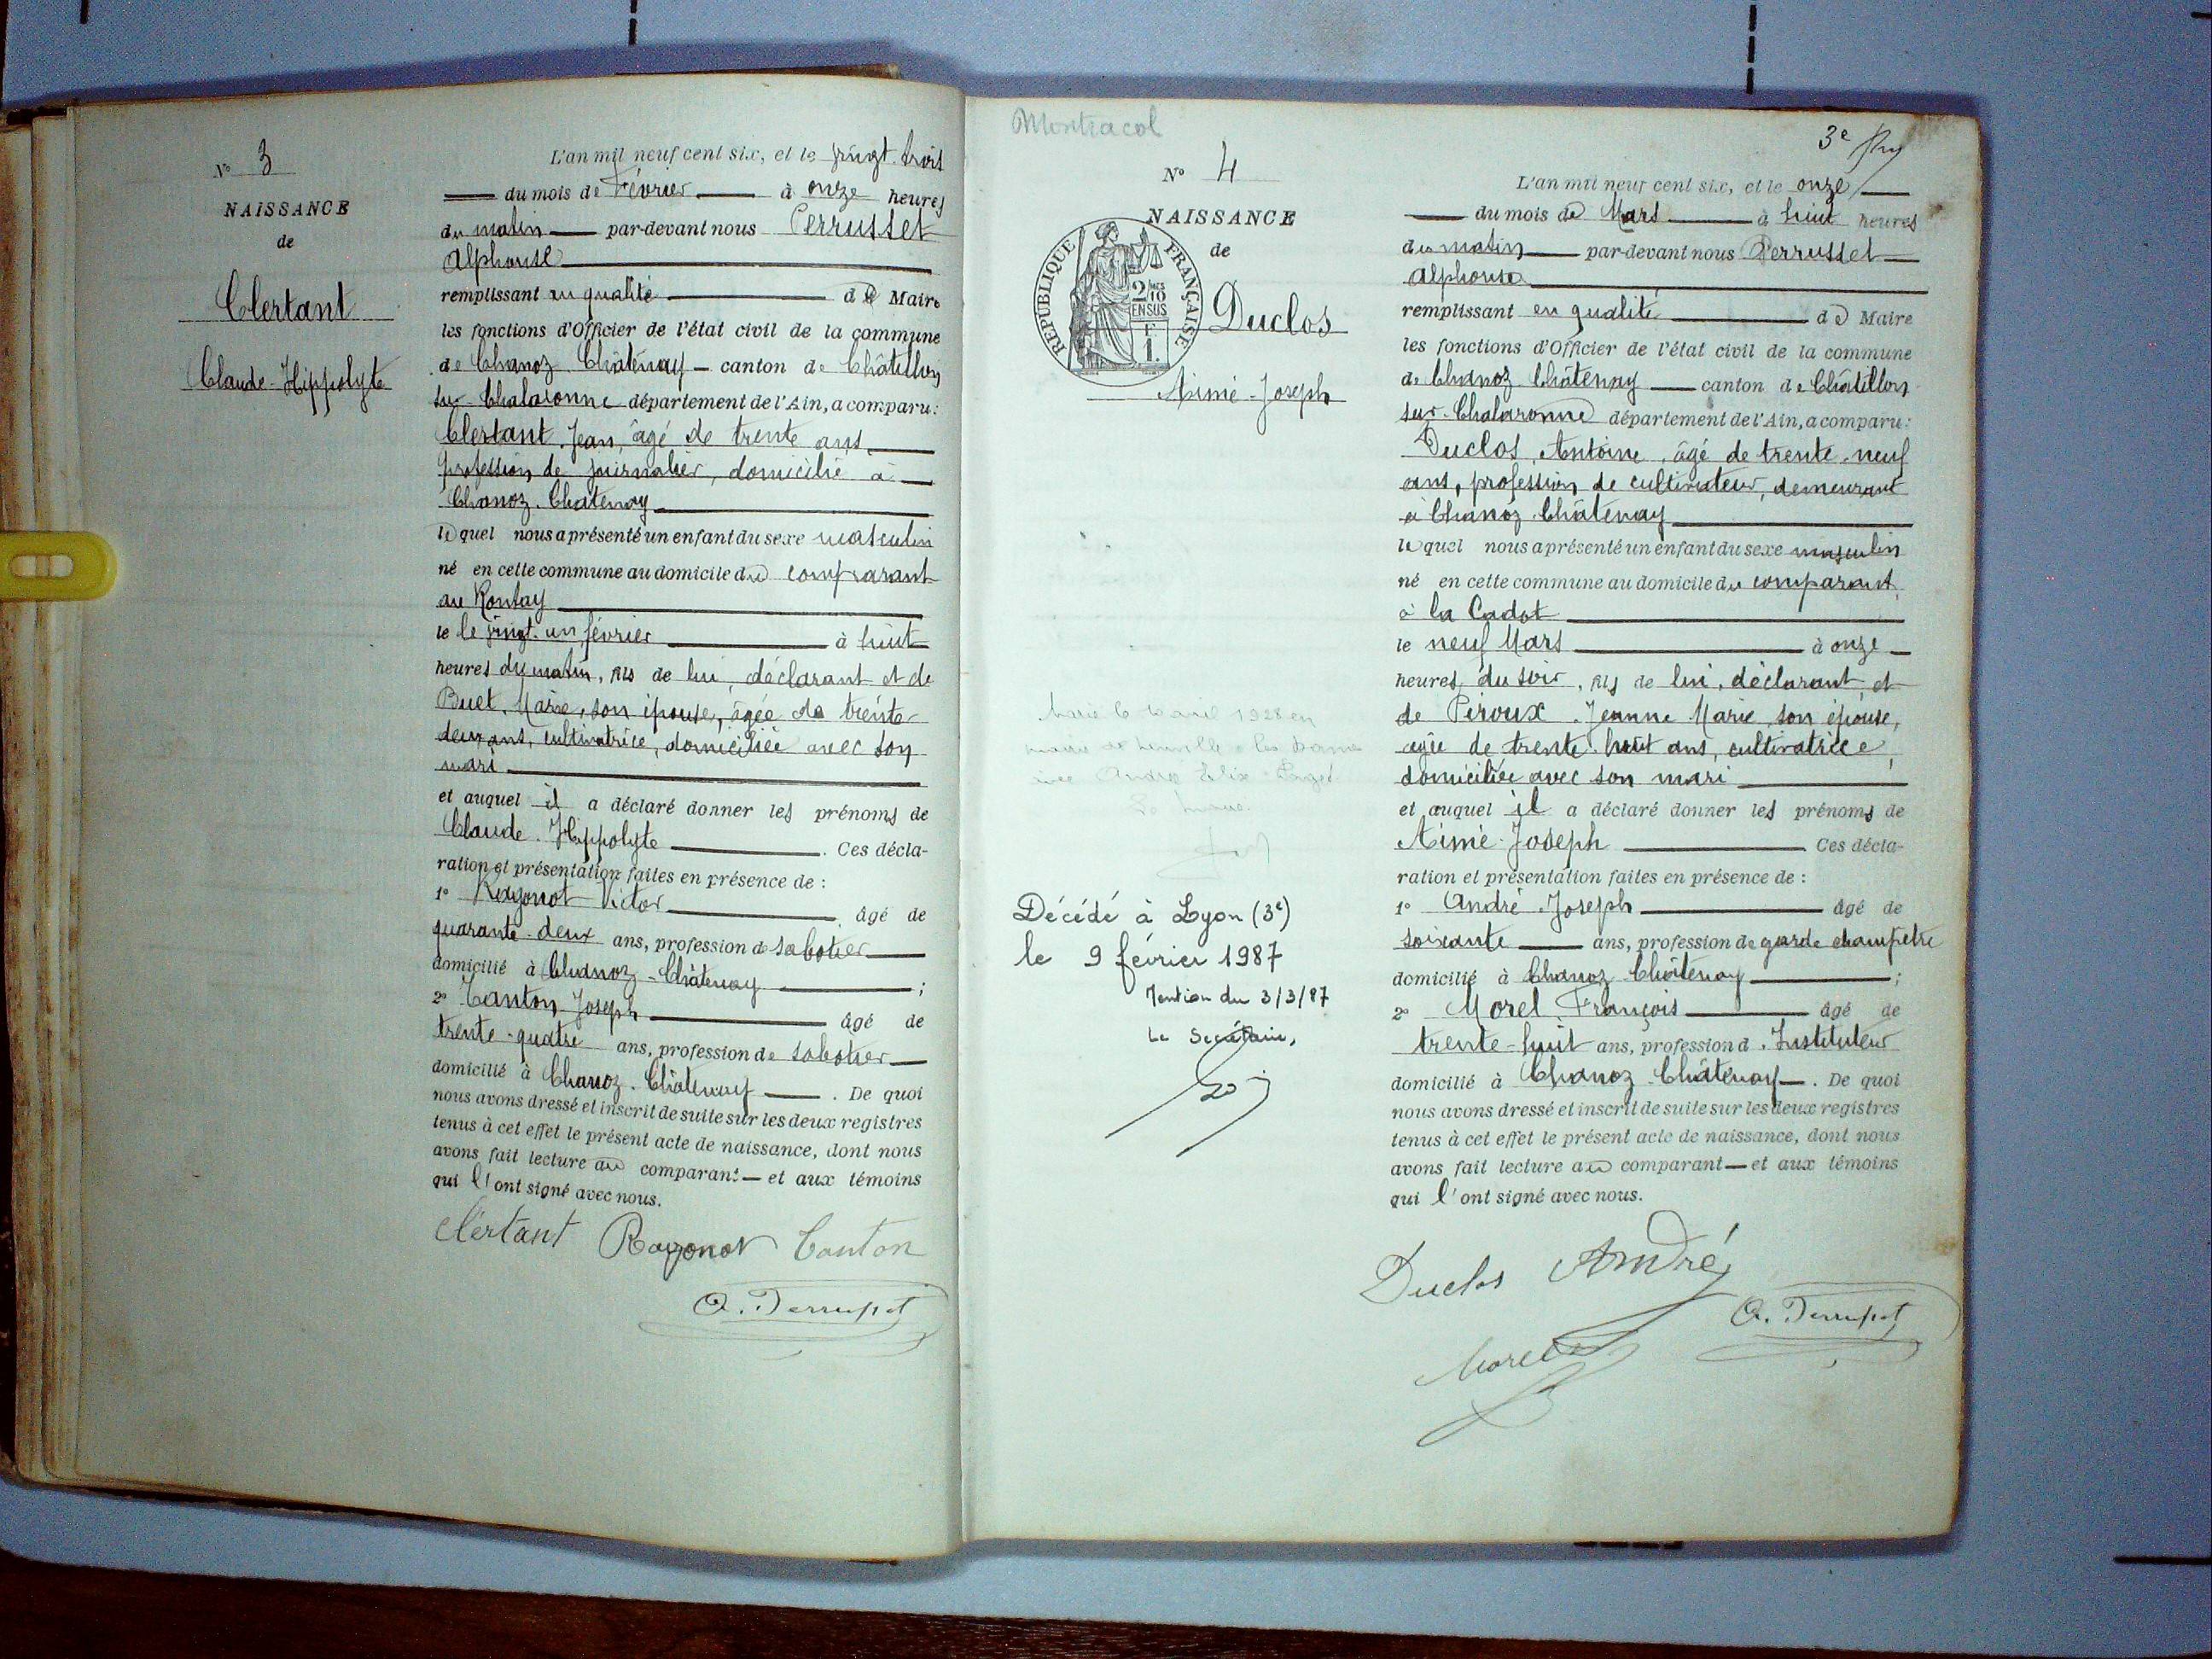 N° 3
NAISSANCE
de
Clertant
Claude-Hippolyte
L'an mil neuf cent six, et le vingt-trois
du mois de Février à onze heures
du matin par-devant nous Perrusset
Alphonse
remplissant en qualité de Maire
les fonctions d'Officier de l'état civil de la commune
de Chanoz-Châtenay canton de Châtillon
sur-Chalaronne département de l'Ain, a comparu:
Clertant, Jean, âgé de trente ans
profession de journalier, domicilié à
Chanoz-Chatenay
lequel nous a présenté un enfant du sexe masculin
né en cette commune au domicile du comparant
au Rontay
le le vingt-un février à huit
heures du matin, fils de lui, déclarant et de
Buet, Marie, son épouse, âgée de trente-
deux ans, cultivatrice, domiciliée avec son
mari
et auquel il a déclaré donner les prénoms de
Claude-Hippolyte. Ces décla-
ration et présentation faites en présence de :
1° Rayonot Victor âgé de
quarante-deux ans, profession de sabotier
domicilié à Chanoz-Châtenay ;
2° Canton Joseph âgé de
trente-quatre ans, profession de sabotier
domicilié à Chanoz-Châtenay. De quoi
nous avons dressé et inscrit de suite sur les deux registres
tenus à cet effet le présent acte de naissance, dont nous
avons fait lecture au comparant et aux témoins
qui l'ont signé avec nous.
Clertant Rayonot Canton
A. Perrusset
Montracol
3e
N° 4
NAISSANCE
de
RÉPUBLIQUE FRANÇAISE
2/10 EN SUS
F 1.
Duclos
Aimé-Joseph
Marié le avril 1928 en
mairie de Neuville-les-Dames
avec André
Décédé à Lyon (3e)
le 9 février 1987
Mention du 3/3/87
Le Secrétaire,
L'an mil neuf cent six, et le onze
du mois de Mars à huit heures
du matin par-devant nous Perrusset
Alphonse
remplissant en qualité de Maire
les fonctions d'Officier de l'état civil de la commune
de Chanoz-Châtenay canton de Châtillon-
sur-Chalaronne département de l'Ain, a comparu:
Duclos, Antoine, âgé de trente-neuf
ans, profession de cultivateur, demeurant
à Chanoz-Châtenay
lequel nous a présenté un enfant du sexe masculin
né en cette commune au domicile du comparant,
à la Cadot
le neuf Mars à onze
heures du soir, fils de lui, déclarant, et
de Piroux, Jeanne Marie, son épouse,
agée de trente-huit ans, cultivatrice,
domiciliée avec son mari
et auquel il a déclaré donner les prénoms de
Aimé-Joseph Ces décla-
ration et présentation faites en présence de :
1° André Joseph âgé de
soixante ans, profession de garde champêtre
domicilié à Chanoz-Châtenay ;
2° Morel François âgé de
trente-huit ans, profession d'Instituteur
domicilié à Chanoz-Châtenay. De quoi
nous avons dressé et inscrit de suite sur les deux registres
tenus à cet effet le présent acte de naissance, dont nous
avons fait lecture au comparant et aux témoins
qui l'ont signé avec nous.
Duclos André
A. Perrusset
Morel